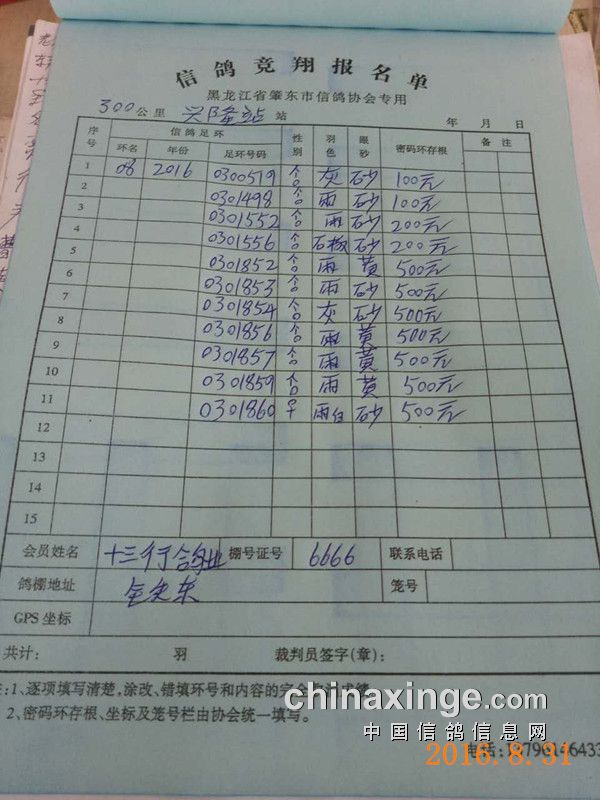 信鸽竞翔报名单
黑龙江省肇东市信鸽协会专用
300公里 兴隆站 站 年 月 日
序号 信鸽足环 性别 羽色 眼砂 密码环存根 备注
环名 年份 足环号码
1 08 2016 0300519 合 灰 砂 100元
2 0301498 合 雨 砂 100元
3 0301552 合 雨 砂 200元
4 0301556 合 石板 砂 200元
5 0301852 合 雨 黄 500元
6 0301853 合 雨 砂 500元
7 0301854 合 灰 砂 500元
8 0301856 合 雨 黄 500元
9 0301857 合 雨 黄 500元
10 0301859 合 雨 黄 500元
11 0301860 早 雨白 砂 500元
12
13
14
15
会员姓名 十三行鸽业 棚号证号 6666 联系电话
鸽棚地址 笼号
GPS 坐标
共计: 羽 裁判员签字(章):
:1、逐项填写清楚,涂改、错填环号和内容的
2、密码环存根、坐标及笼号栏由协会统一填写。
chinaxinge.com
中国信鸽信息网
电话:
2016.8.31